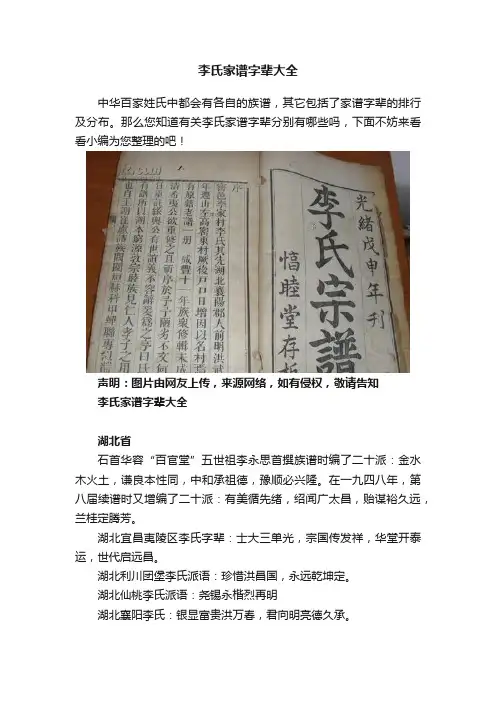 李氏家谱字辈大全
中华百家姓氏中都会有各自的族谱，其它包括了家谱字辈的排行
及分布。那么您知道有关李氏家谱字辈分别有哪些吗，下面不妨来看
看小编为您整理的吧！
光緒戊申年刊
李氏宗譜
睦堂存板
序
邑李家村李氏其先湖北襄陽郡人前明洪武
年遷山左高密東村厥後戶口日增因以名村焉
有原籍老譜一冊 咸豐十一年族衆修輯未成
声明：图片由网友上传，来源网络，如有侵权，敬请告知
李氏家谱字辈大全
湖北省
石首华容“百官堂”五世祖李永思首撰族谱时编了二十派：金水
木火土，谦良本性同，中和承祖德，豫顺必兴隆。在一九四八年，第
八届续谱时又增编了二十派：有美循先绪，绍闻广太昌，贻谋裕久远，
兰桂定腾芳。
湖北宜昌夷陵区李氏字辈：士大三单光，宗国传发祥，华堂开泰
运，世代启远昌。
湖北利川团堡李氏派语：珍惜洪昌国，永远乾坤定。
湖北仙桃李氏派语：尧锡永楷烈再明
湖北襄阳李氏：银显富贵洪万春，君向明亮德久承。